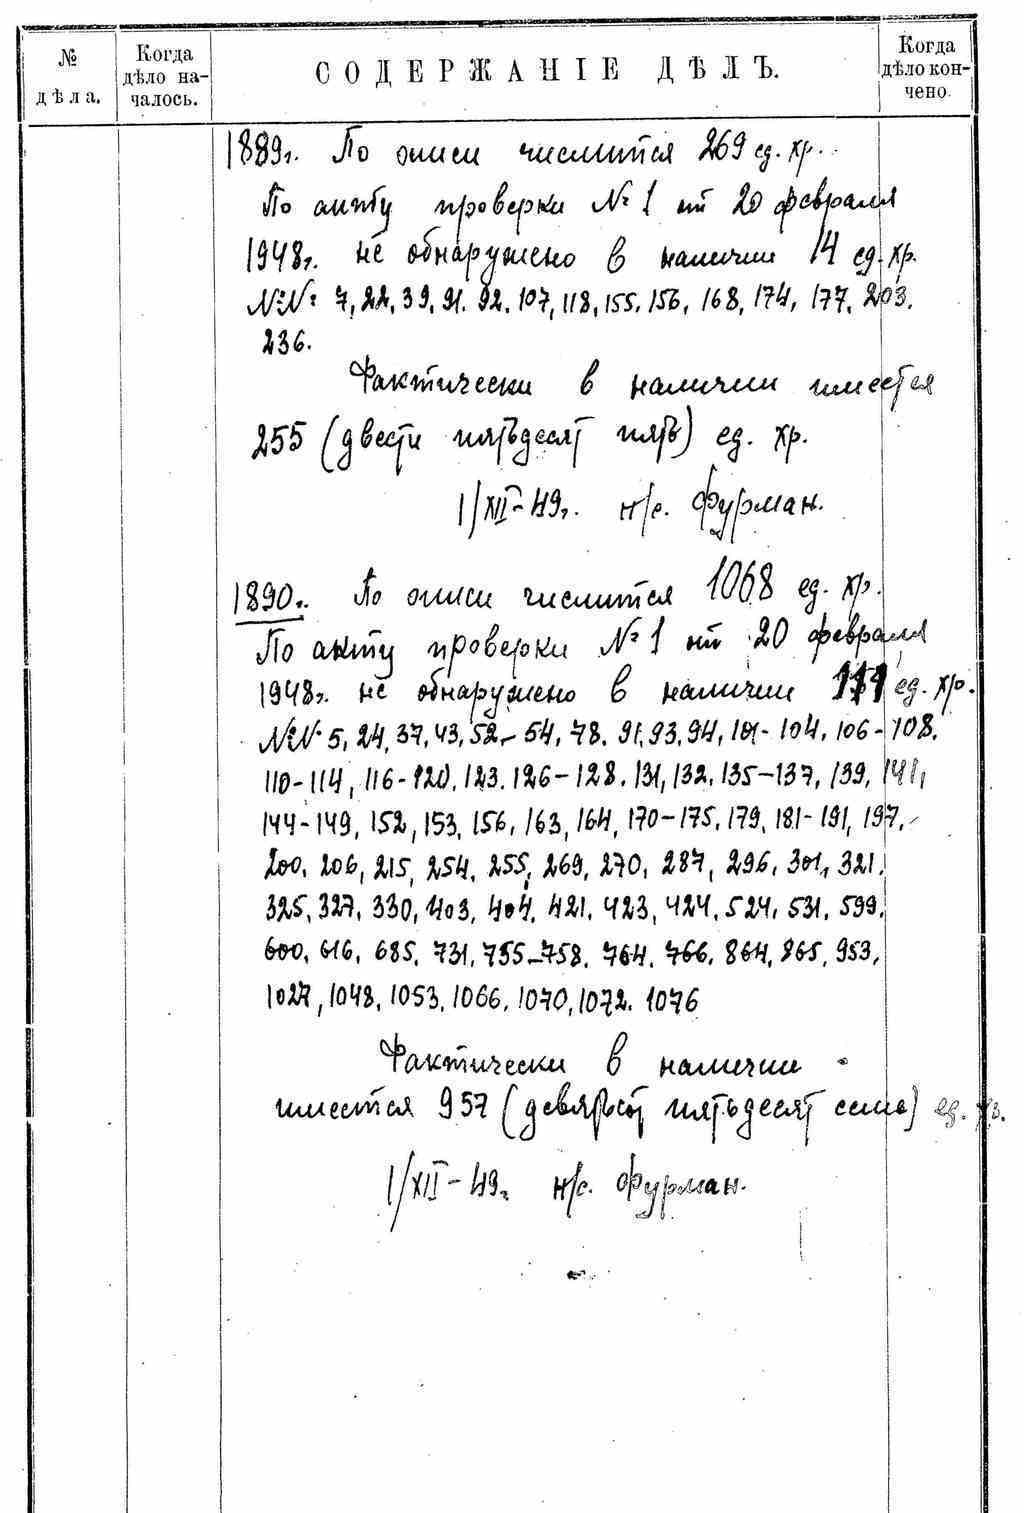 №
дѣла.
Когда
дѣло на-
чалось.
СОДЕРЖАНІЕ ДѢЛЪ.
Когда
дѣло кон-
чено.
1889г. По описи числится 269 ед. хр.
По акту проверки № 1 от 20 февраля
1948г. не обнаружено в наличии 14 ед. хр.
№№ 7, 22, 39, 91, 92, 107, 118, 155, 156, 168, 174, 177, 203,
236.
Фактически в наличии имеется
255 (двести пятьдесят пять) ед. хр.
1/XII-49г. н/с. Фурман.
1890г. По описи числится 1068 ед. хр.
По акту проверки № 1 от 20 февраля
1948г. не обнаружено в наличии 111 ед. хр.
№№ 5, 24, 37, 43, 52-54, 78, 91, 93, 94, 101-104, 106-108,
110-114, 116-120, 123, 126-128, 131, 132, 135-137, 139, 141,
144-149, 152, 153, 156, 163, 164, 170-175, 179, 181-191, 197,
200, 206, 215, 254, 255, 269, 270, 287, 296, 301, 321,
325, 327, 330, 403, 404, 421, 423, 424, 524, 531, 599,
600, 616, 685, 731, 755-758, 764, 766, 864, 865, 953,
1027, 1048, 1053, 1066, 1070, 1072, 1076
Фактически в наличии
имеется 957 (девятьсот пятьдесят семь) ед. хр.
1/XII-49г. н/с. Фурман.